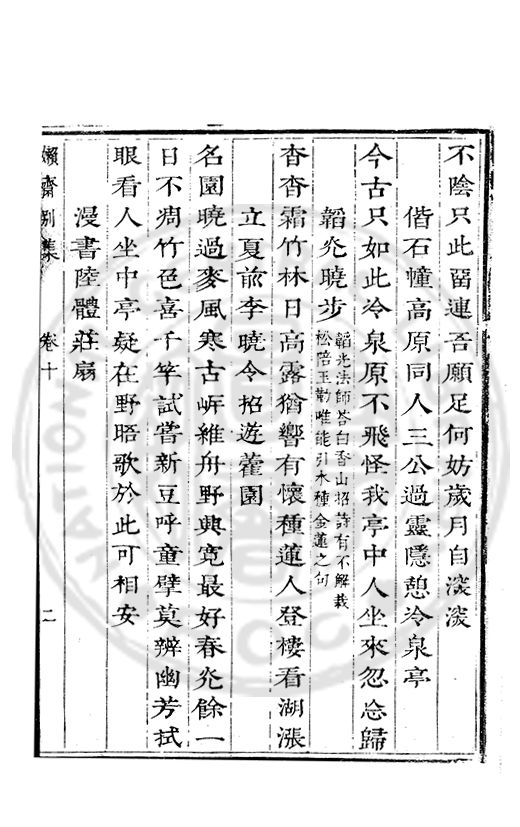 不陰只此畱連吾願足何妨歲月自淡淡
偕石幢高原同人三公過靈隱憩冷泉亭
今古只如此冷泉原不飛怪我亭中人坐來忽忘歸
韜光曉步
韜光法師答白香山招詩有不解栽
松陪玉勒唯能引水種金蓮之句
杳杳霜竹林日高露猶響有懷種蓮人登樓看湖漲
立夏前李曉令招遊藿園
名園曉過麥風寒古岍維舟野興寬最好春光餘一
日不凋竹色喜千竿試嘗新豆呼童擘莫辨幽芳拭
眼看人坐中亭疑在野晤歌於此可相安
漫書陸體莊扇
嬾齋別集
卷十
二